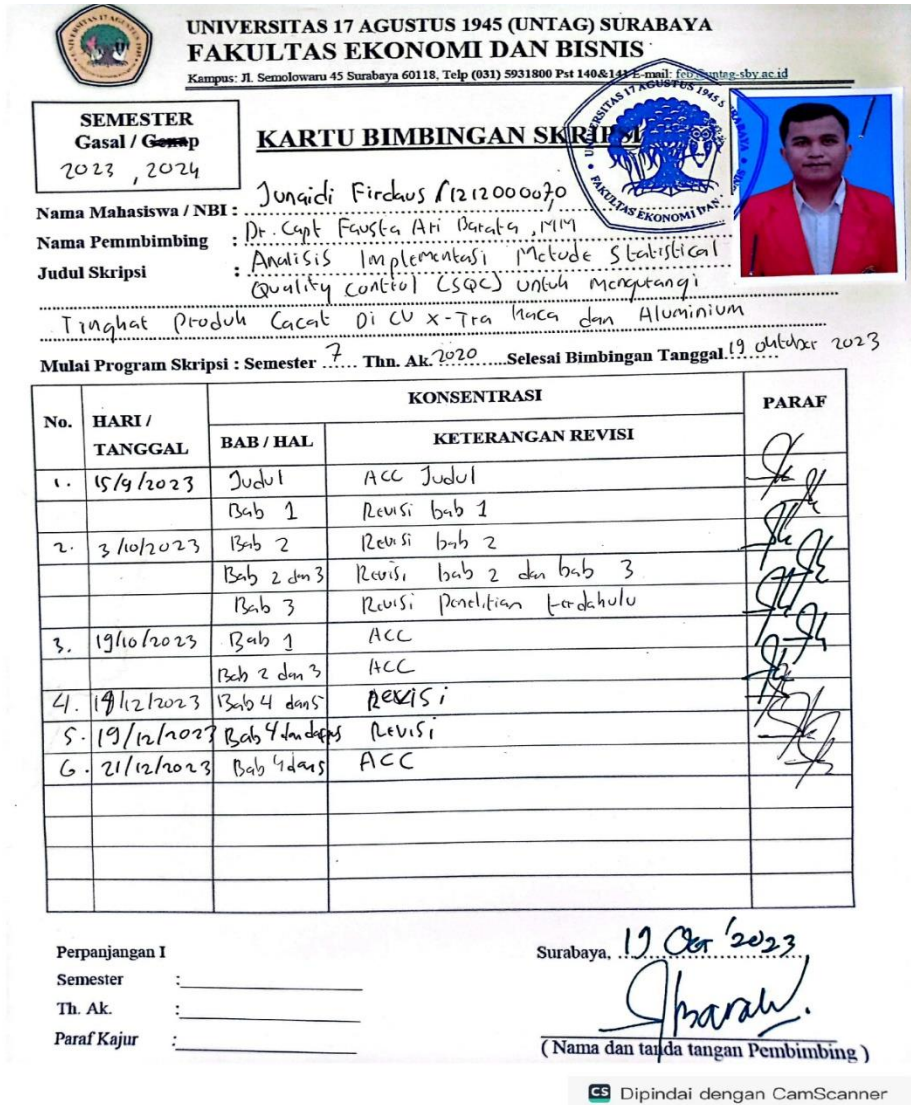 UNIVERSITAS 17 AGUSTUS 1945 (UNTAG) SURABAYA
FAKULTAS EKONOMI DAN BISNIS
Kampus: Jl. Semolowaru 45 Surabaya 60118, Telp (031) 5931800 Pst 140&141 E-mail: feb@untag-sby.ac.id
SEMESTER
Gasal / Genap
2023 , 2024
KARTU BIMBINGAN SKRIPSI
UNIVERSITAS 17 AGUSTUS 1945 SURABAYA
FAKULTAS EKONOMI DAN
Nama Mahasiswa / NBI : Junaidi Firdaus / 1212000070
Nama Pemmbimbing : Dr. Capt Fausta Ari Barata, MM
Judul Skripsi : Analisis Implementasi Metode Statistical
Quality Control (SQC) untuk mengurangi
Tingkat Produk Cacat Di CV X-Tra kaca dan Aluminium
Mulai Program Skripsi : Semester 7 Thn. Ak. 2020 Selesai Bimbingan Tanggal 19 oktober 2023
No. HARI / TANGGAL KONSENTRASI PARAF
BAB / HAL KETERANGAN REVISI
1. 15/9/2023 Judul ACC Judul
Bab 1 Revisi bab 1
2. 3/10/2023 Bab 2 Revisi bab 2
Bab 2 dan 3 Revisi bab 2 dan bab 3
Bab 3 Revisi Penelitian terdahulu
3. 19/10/2023 Bab 1 ACC
Bab 2 dan 3 ACC
4. /12/2023 Bab 4 dan 5 Revisi
5. 19/12/2023 Bab 4 dan Revisi
6. 21/12/2023 Bab 4 dan 5 ACC
Perpanjangan I
Semester :
Th. Ak. :
Paraf Kajur :
Surabaya, 19 Okt '2023
(Nama dan tanda tangan Pembimbing)
CS Dipindai dengan CamScanner